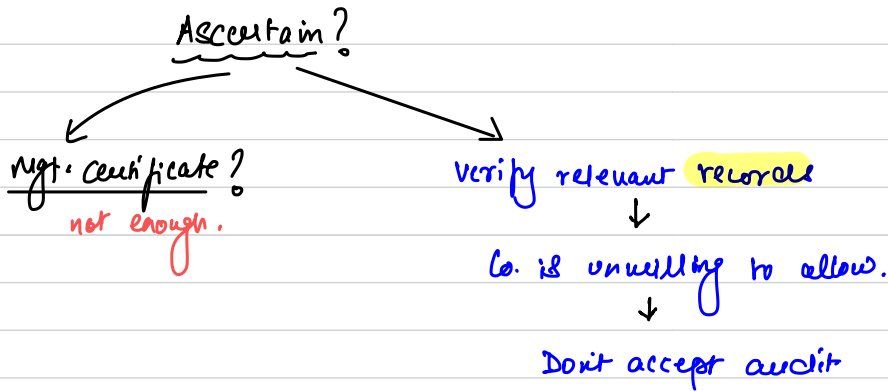 Ascertain?
Mgt. Certificate?
not enough.
Verify relevant records
Co. is unwilling to allow.
Don't accept audit